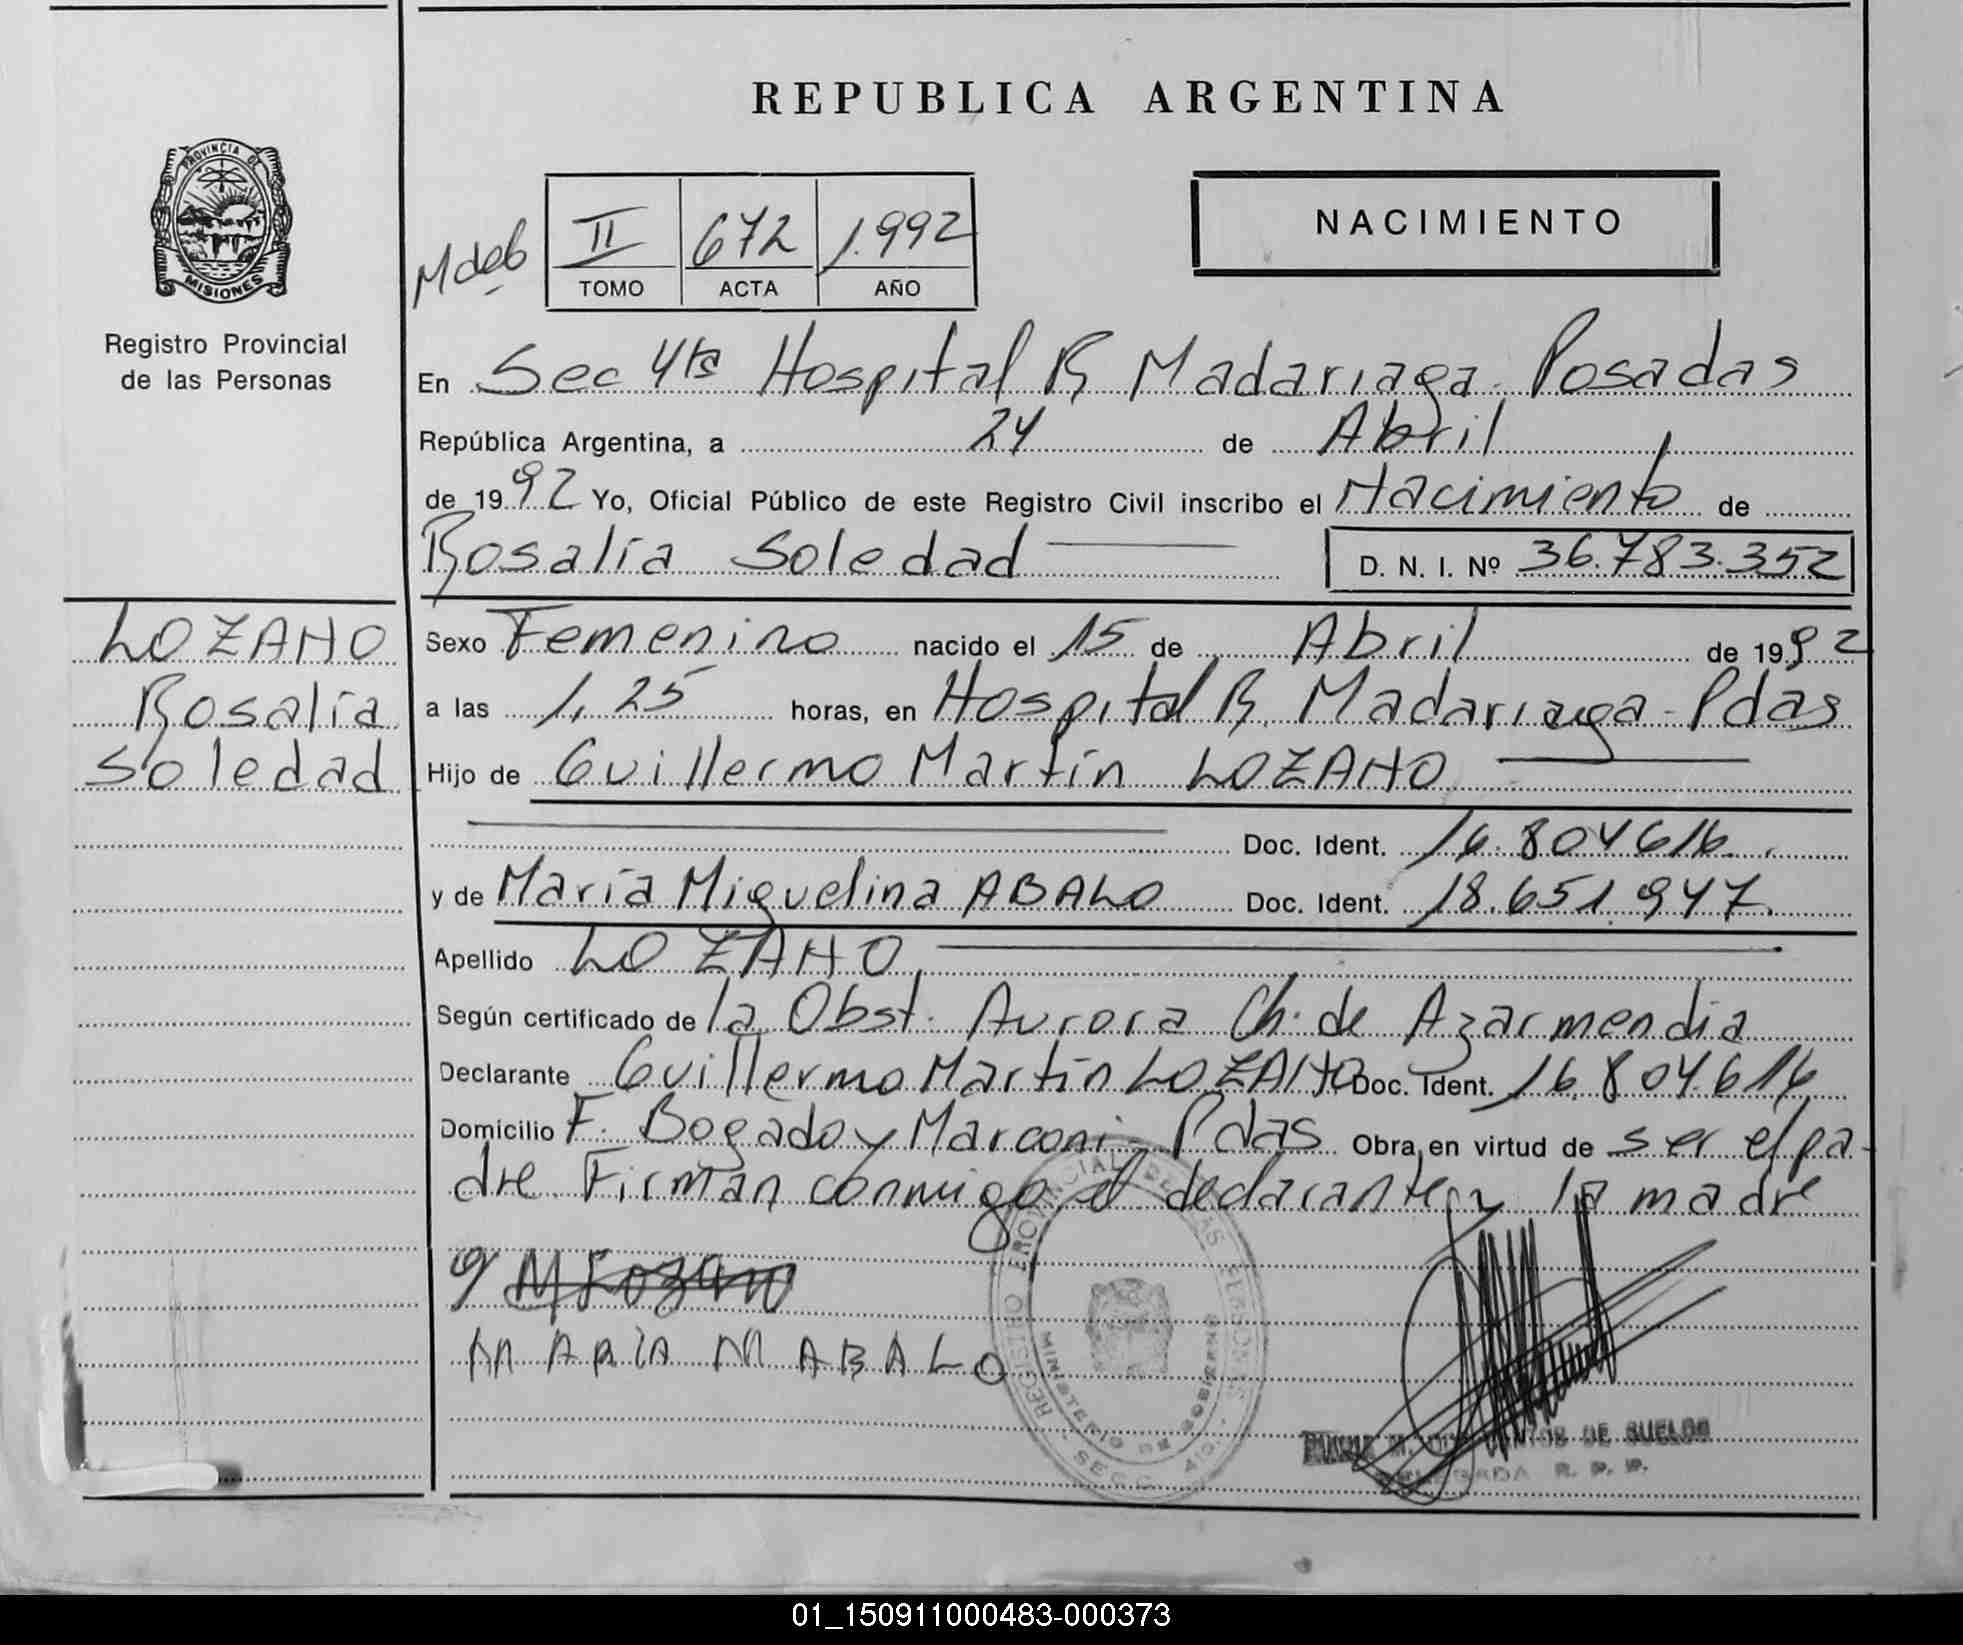 REPUBLICA ARGENTINA
PROVINCIA DE
MISIONES
Registro Provincial
de las Personas
II 672 1.992
TOMO ACTA AÑO
NACIMIENTO
En Sec 4ta Hospital R Madariaga - Posadas
República Argentina, a 24 de Abril
de 1992 Yo, Oficial Público de este Registro Civil inscribo el Nacimiento de
Rosalía Soledad D. N. I. Nº 36.783.352
LOZANO
Rosalía
Soledad
Sexo Femenino nacido el 15 de Abril de 1992
a las 1,25 horas, en Hospital R. Madariaga - Pdas
Hijo de Guillermo Martín LOZANO
Doc. Ident. 16.804616.
y de María Miguelina ABALO Doc. Ident. 18.651.947.
Apellido LOZANO
Según certificado de la Obst. Aurora Ch. de Azarmendia
Declarante Guillermo Martín LOZANO Doc. Ident. 16.804.616
Domicilio F. Bogado y Marconi - Pdas Obra en virtud de ser el pa-
dre. Firman conmigo el declarante y la madre
M Lozano
MARIA M ABALO
REGISTRO PROVINCIAL DE LAS PERSONAS
MINISTERIO DE GOBIERNO
SECC. 4ta.
DE SUELDO
DELEGADA R. P. P.
01_150911000483-000373